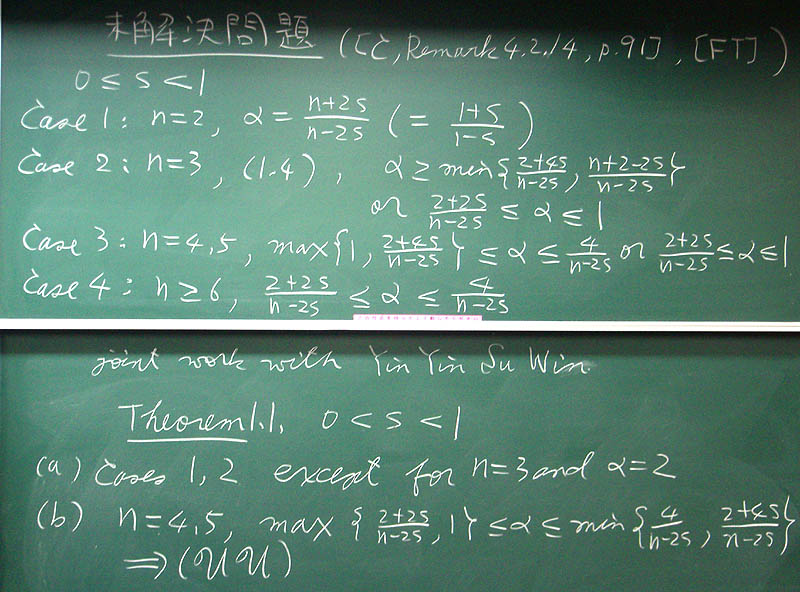 未解決問題 ([C, Remark 4.2.14, p.91], [FT])
0 ≤ s < 1
Case 1 : n=2, α = \frac{n+2s}{n-2s} (= \frac{1+s}{1-s})
Case 2 : n=3, (1.4), α ≥ min{\frac{2+4s}{n-2s}, \frac{n+2-2s}{n-2s}}
or \frac{2+2s}{n-2s} ≤ α ≤ 1
Case 3 : n=4,5, max{1, \frac{2+4s}{n-2s}} ≤ α ≤ \frac{4}{n-2s} or \frac{2+2s}{n-2s} ≤ α ≤ 1
Case 4 : n ≥ 6, \frac{2+2s}{n-2s} ≤ α ≤ \frac{4}{n-2s}
joint work with Yin Yin Su Win
Theorem 1.1. 0 < s < 1
(a) Cases 1, 2 except for n=3 and α=2
(b) n=4,5, max {\frac{2+2s}{n-2s}, 1} ≤ α ≤ min{\frac{4}{n-2s}, \frac{2+4s}{n-2s}}
⟹ (UU)